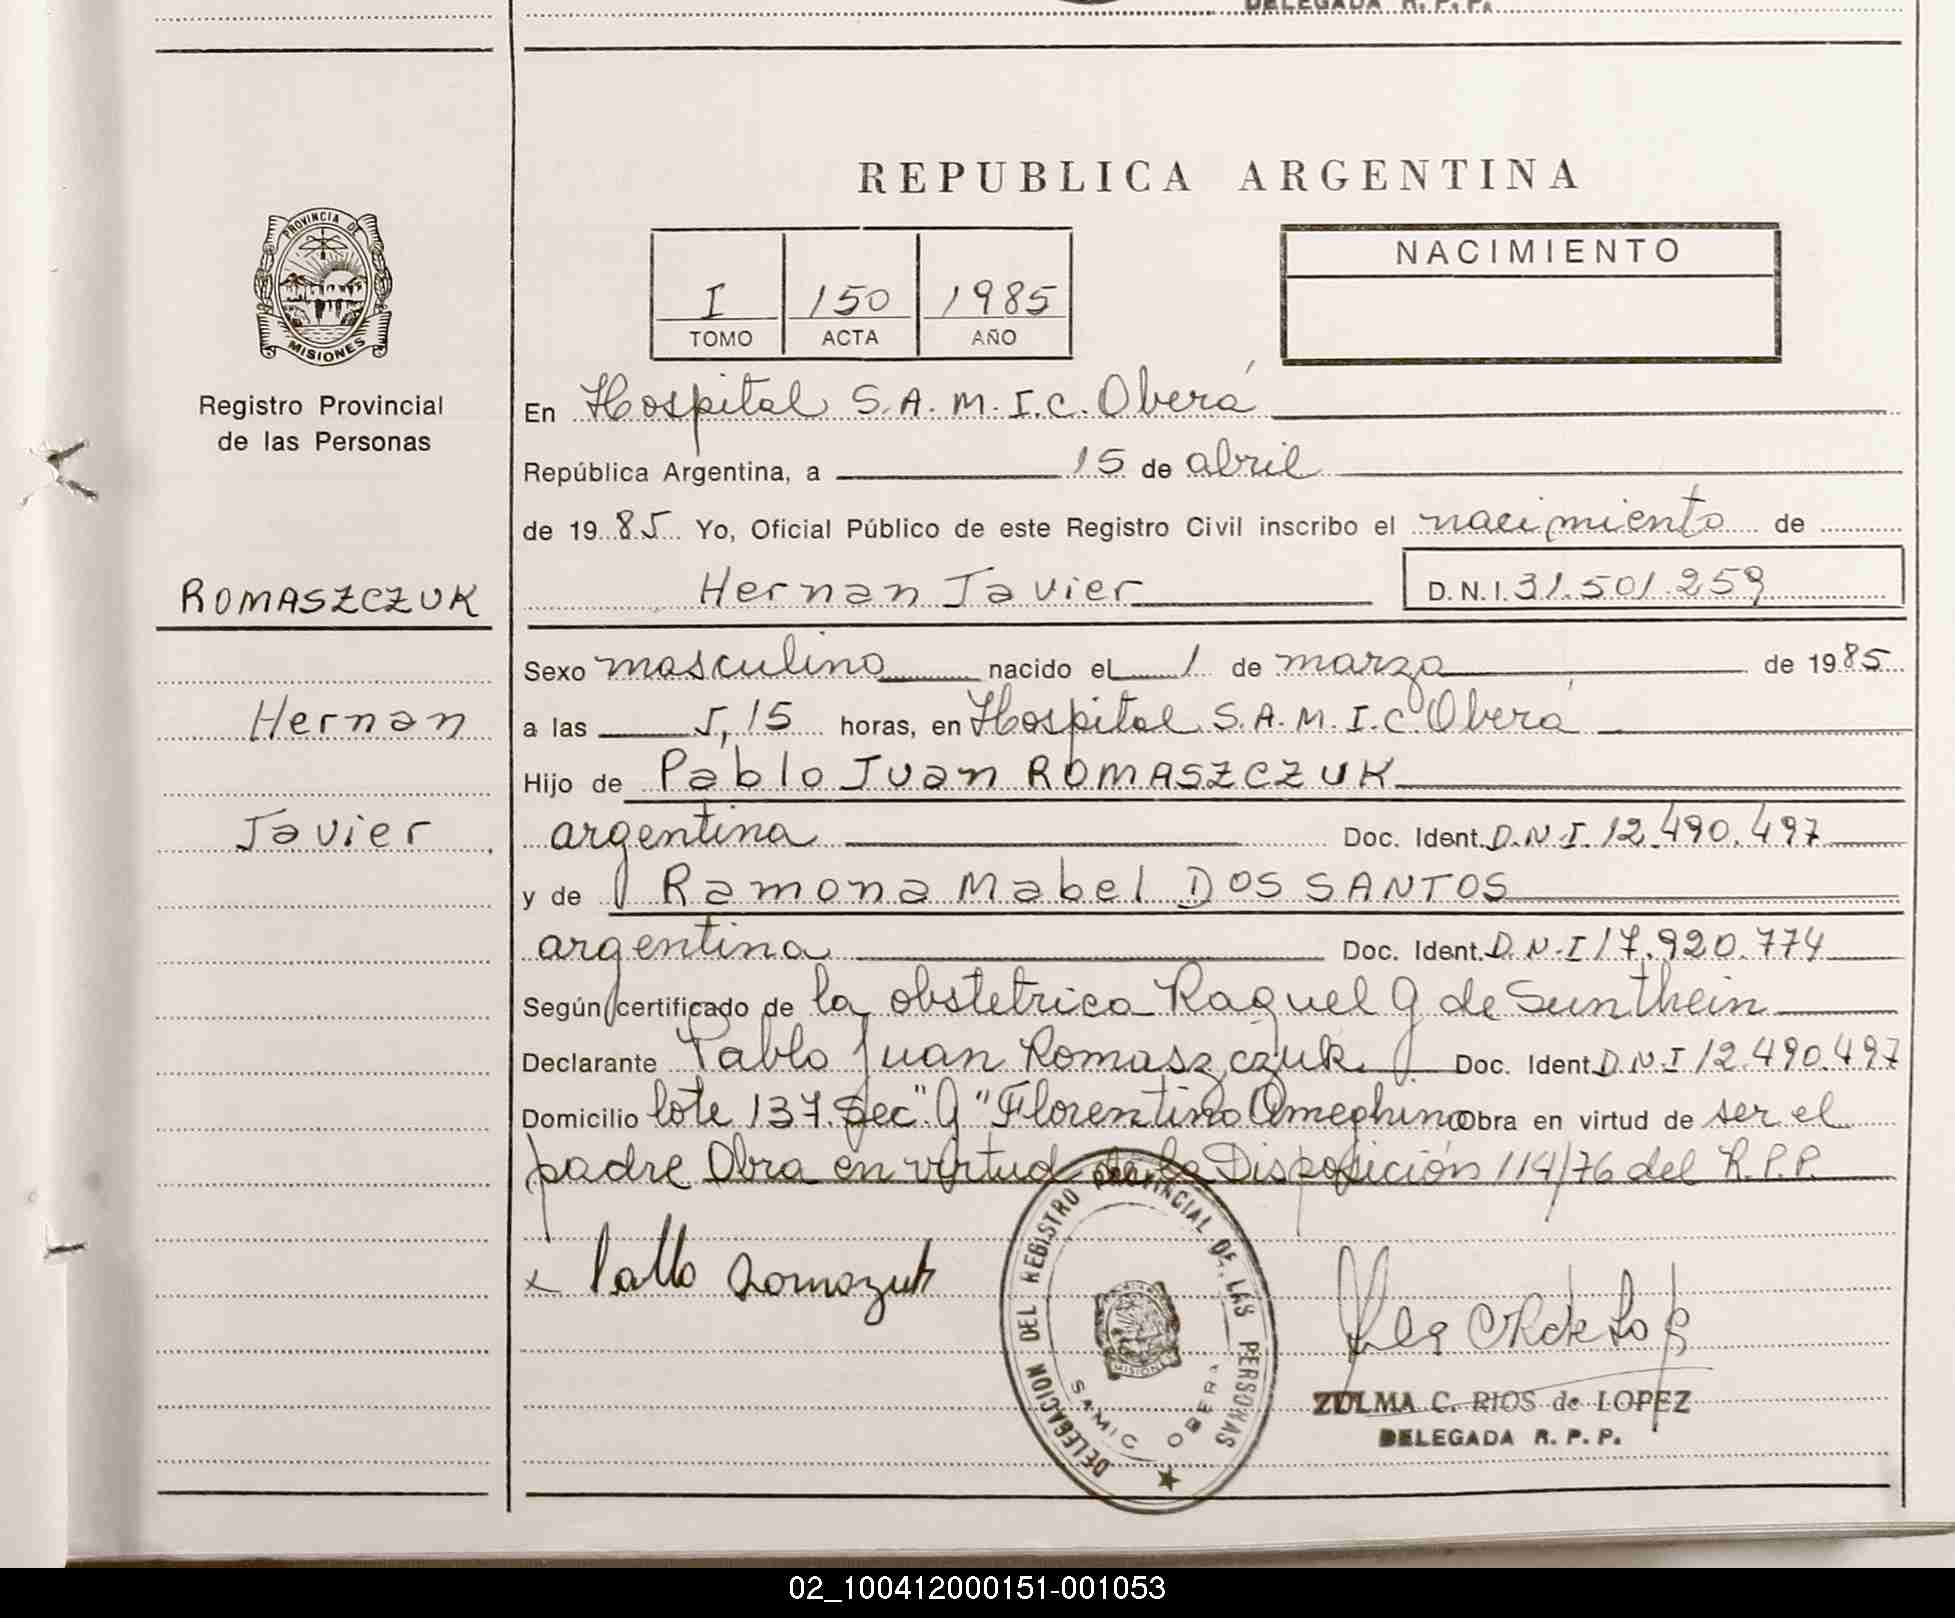 DELEGADA R. P. P.
REPUBLICA ARGENTINA
PROVINCIA DE
MISIONES
Registro Provincial
de las Personas
ROMASZCZUK
Hernan
Javier
I 150 1985
TOMO ACTA AÑO
NACIMIENTO
En Hospital S.A.M.I.C. Oberá
República Argentina, a 15 de abril
de 1985 Yo, Oficial Público de este Registro Civil inscribo el nacimiento de
Hernan Javier D.N.I. 31.501.259
Sexo masculino nacido el 1 de marzo de 1985
a las 5,15 horas, en Hospital S.A.M.I.C. Oberá
Hijo de Pablo Juan ROMASZCZUK
argentina Doc. Ident. D.N.I. 12.490.497
y de Ramona Mabel DOS SANTOS
argentina Doc. Ident. D.N.I 17.920.774
Según certificado de la obstetrica Raquel G de Sunthein
Declarante Pablo Juan Romaszczuk. Doc. Ident. D.N.I 12.490.497
Domicilio lote 137. Sec. "G" Florentino Ameghino Obra en virtud de ser el
padre Obra en virtud de la Disposición 114/76 del R.P.P.
x Pablo Romazuk
DELEGACION DEL REGISTRO PROVINCIAL DE LAS PERSONAS
MISIONES
SAMIC OBERA
ZULMA C. RIOS de LOPEZ
DELEGADA R. P. P.
02_100412000151-001053